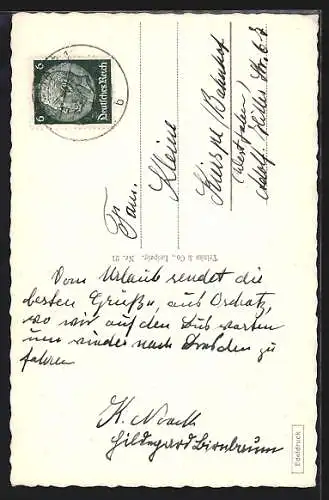 6 6
Deutsches Reich
b
Fam.
Kleine
Kierspe/Bahnhof
(Westfalen)
Adolf Hitler Str. 67
Trinks & Co., Leipzig. Nr. 21
Vom Urlaub sendet die
besten Grüße, aus Oschatz,
wo wir auf den Bus warten
um wieder nach Dresden zu
fahren
K. Noack
Hildegard Birnbaum
Edeldruck